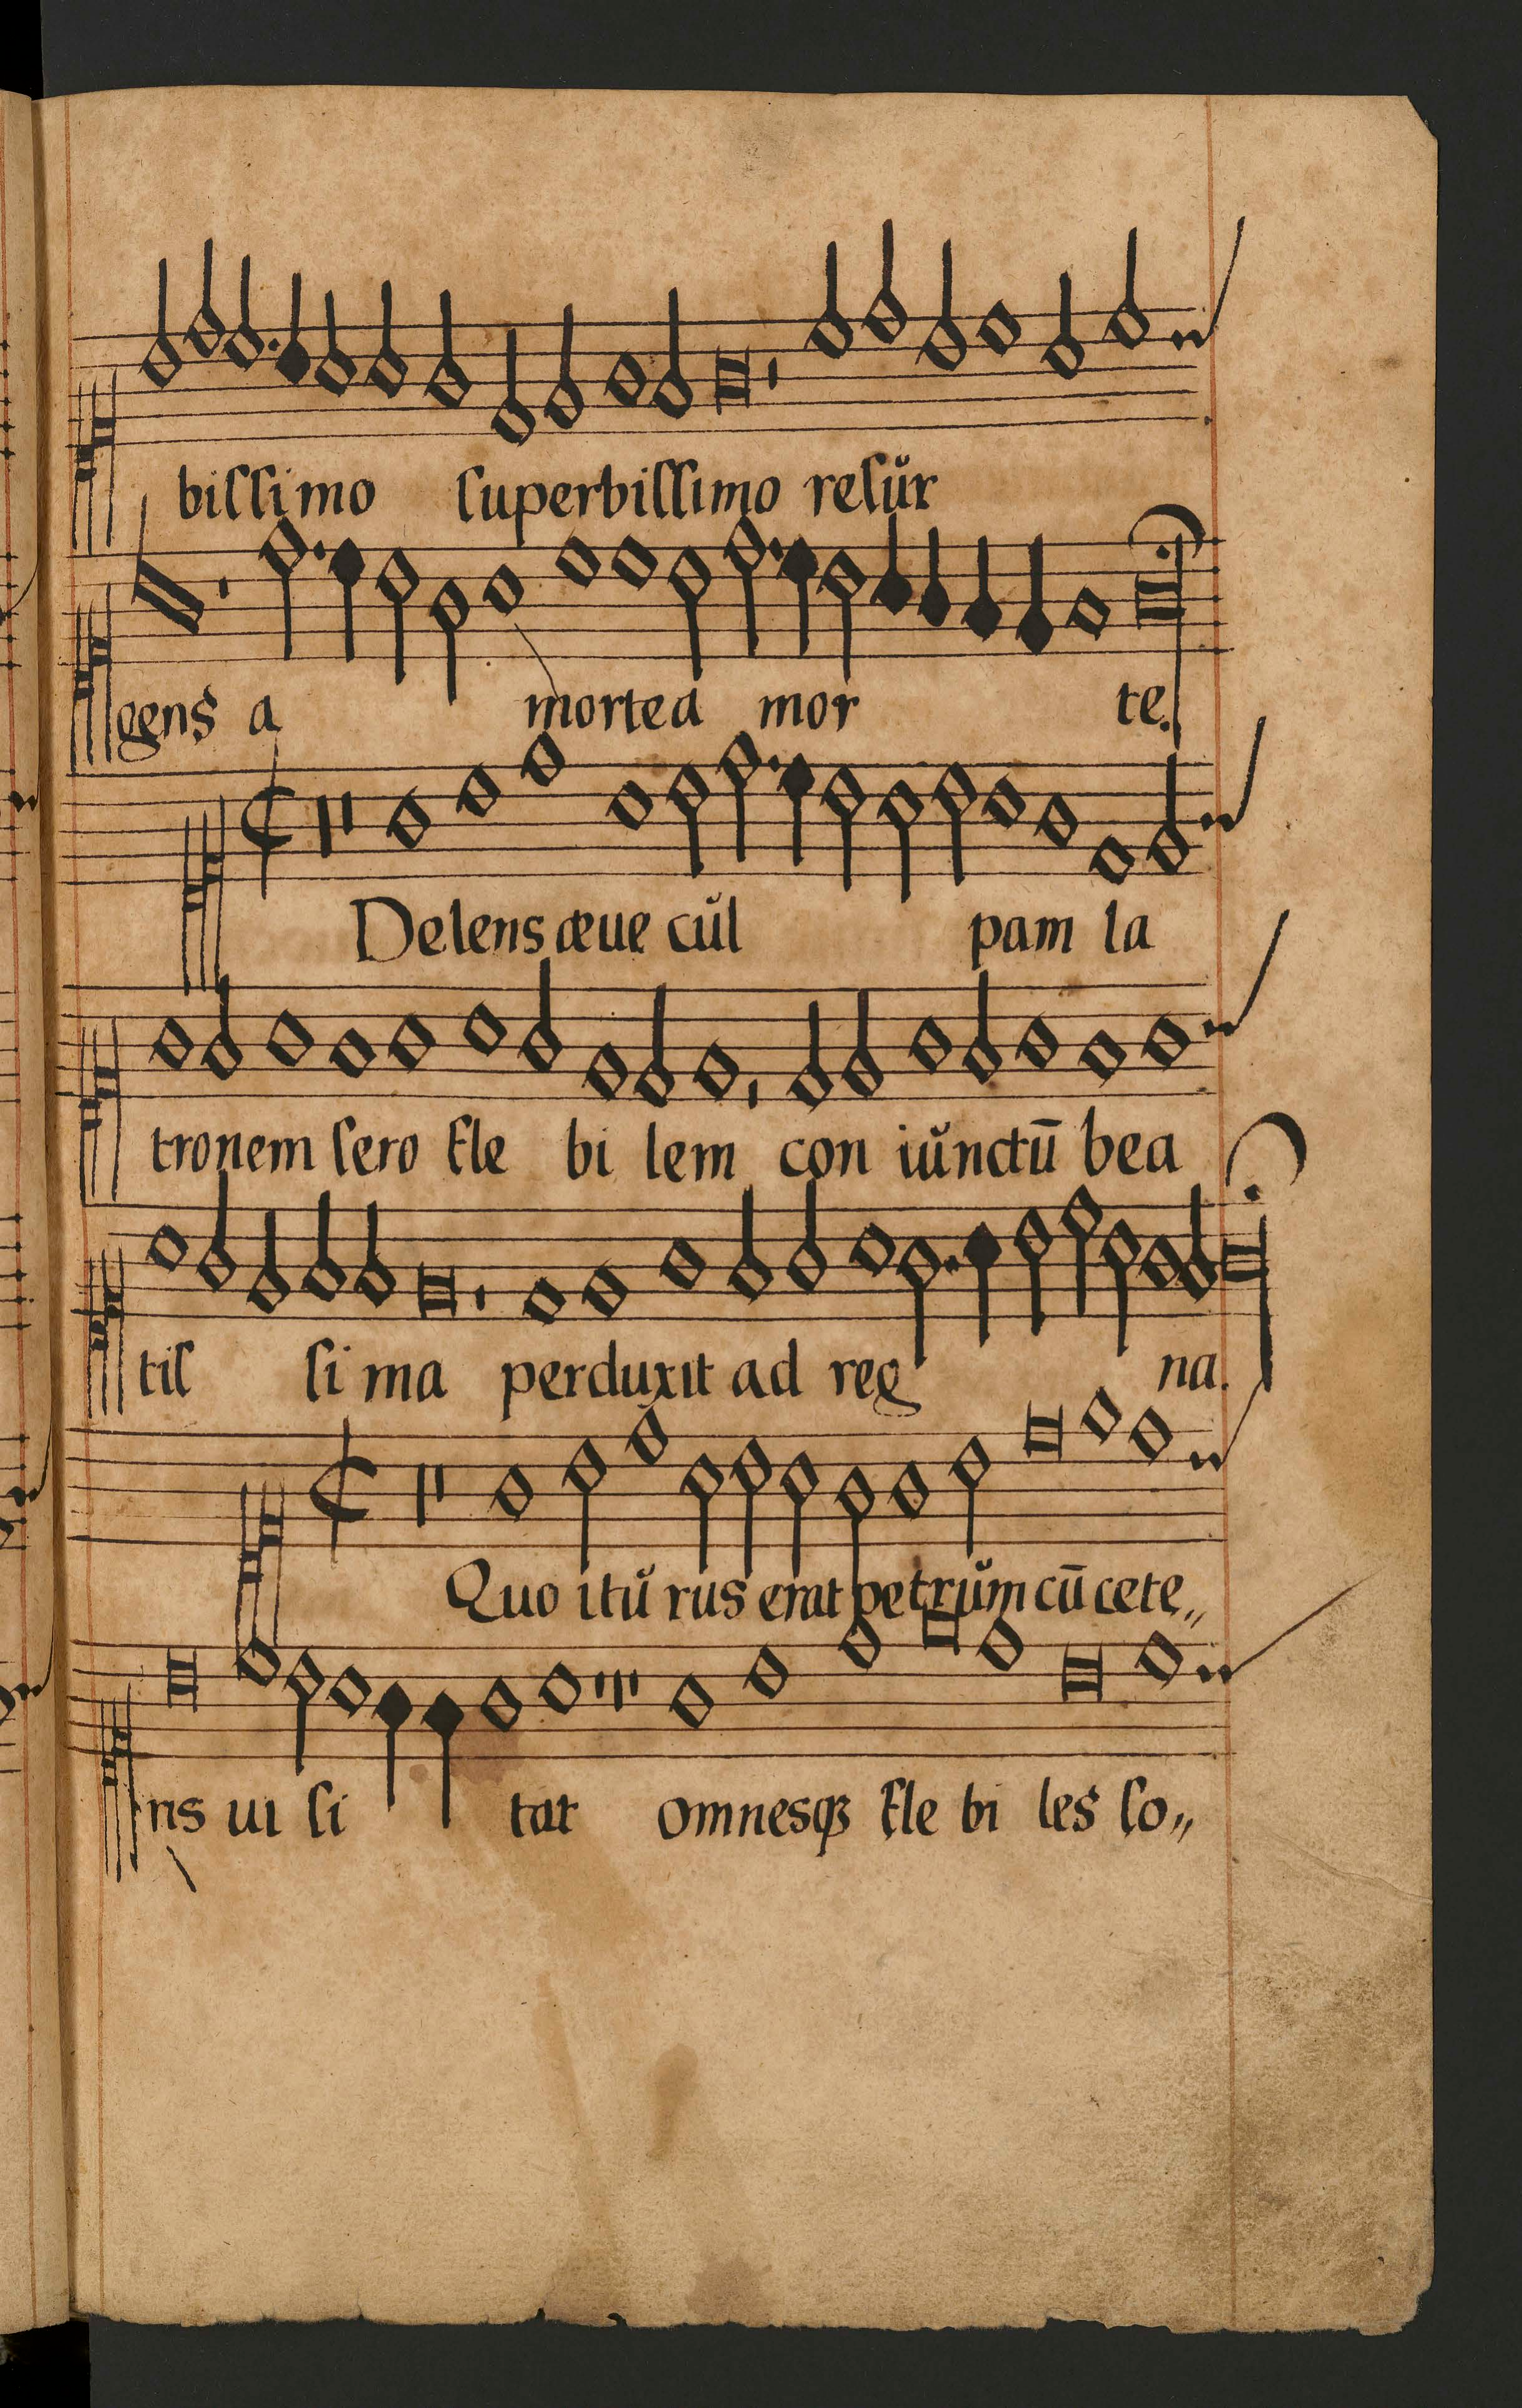 biſſimo ſuperbiſſimo reſŭr
gens a morte a mor te.
Delens æue cŭl pam la
tronem ſero fle bi lem con iŭnctū bea
tiſ ſi ma perduxit ad reg na.
Quo itŭ rus erat petrŭm cū cete„
ris ui ſi tat omnesqꝫ fle bi les ſo„